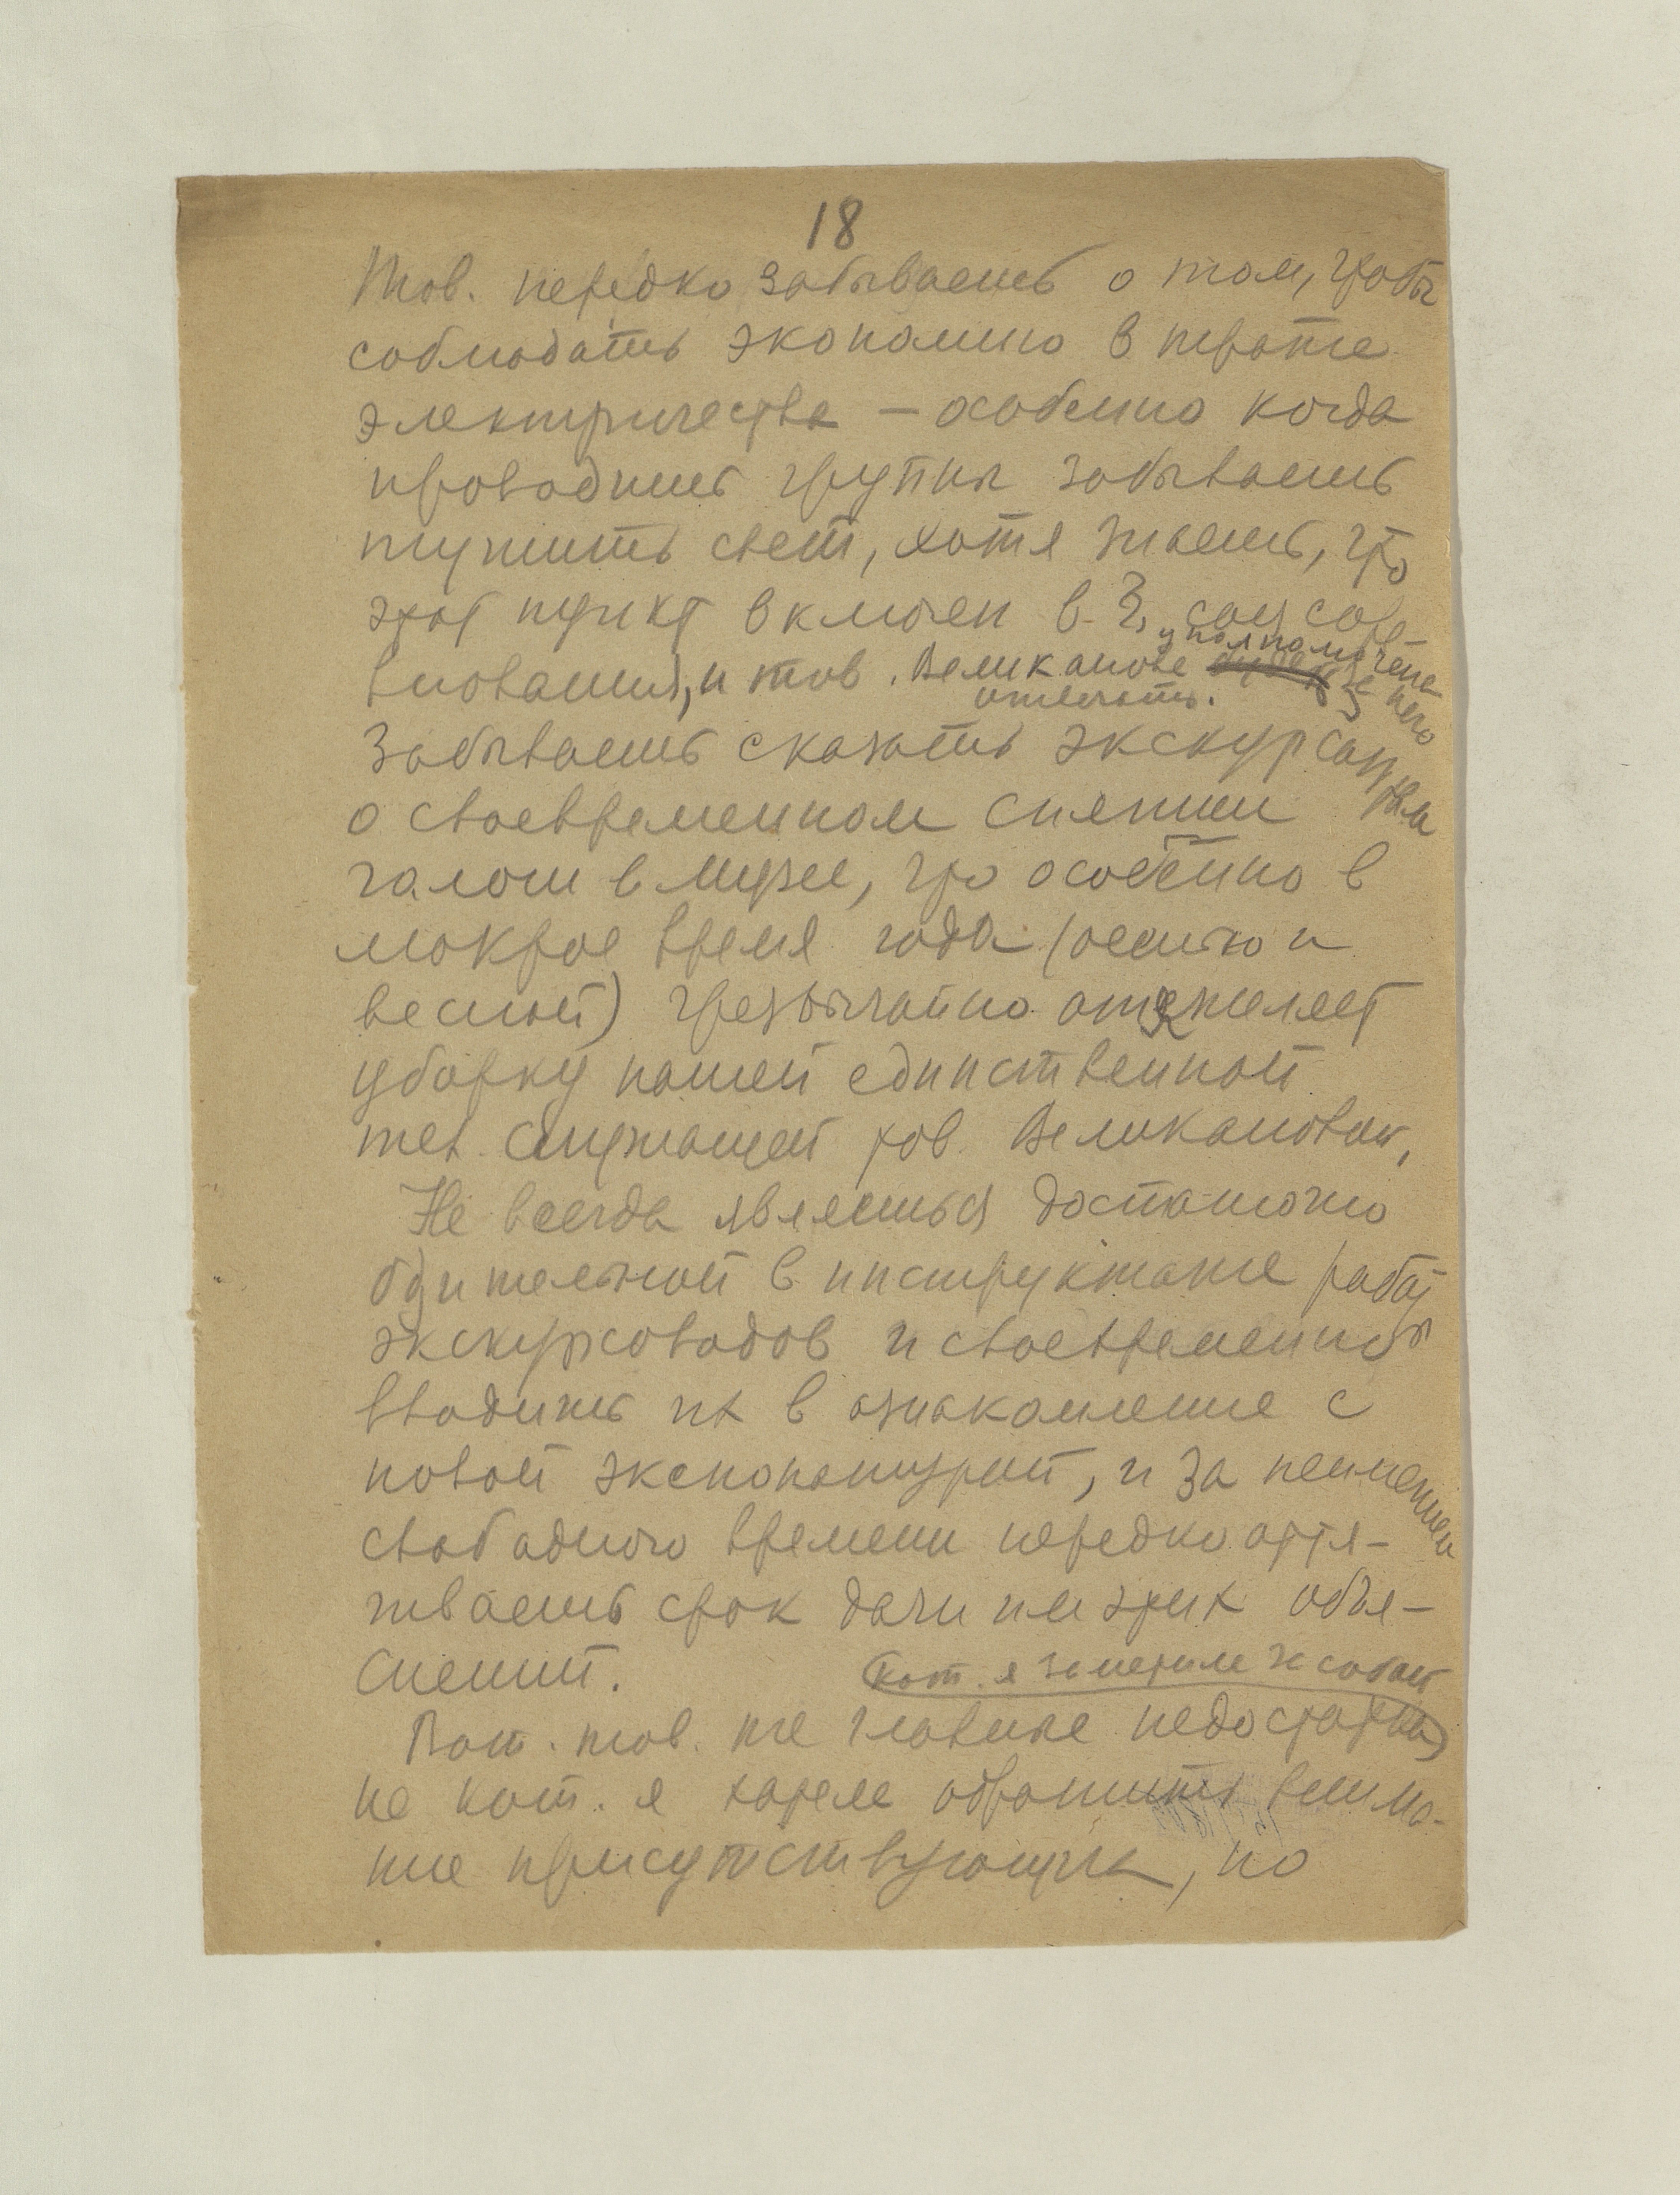 18
Тов. нередко забываешь о том, чтобы
соблюдать экономию в трате
электричества – особенно когда
проводишь группы забываешь
тушить свет, хотя знаешь, что
этот пункт включен в соц сорев-
нования, и тов. Великанова уполномочена за него
отвечать.
Забываешь сказать экскурсантам
о своевременном снятии
галош в музее, что особенно в
мокрое время года (осенью и
весной) чрезвычайно отяжеляет
уборку нашей единственной
тех. служащей тов. Великановой,
Не всегда являешься достаточно
бдительной в инструктаже работы
экскурсоводов и своевременно
вводить их в ознакомление с
новой экспонатурой, и за неимением
свободного времени нередко оття-
гиваешь срок дачи им этих объя-
снений.
кот. я заметила за собой
Вот. тов. те главные недостатки,
на кот. я хотела обратить внима-
ние присутствующих, но